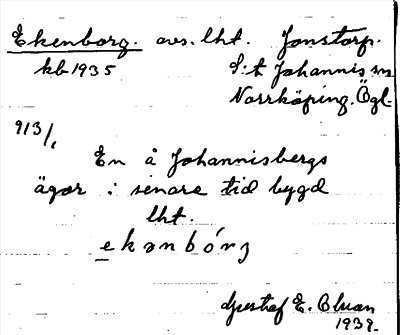 Ekenborg. avs. lht. Jonstorp.
kb 1935 S:t Johannis sn
Norrköping. Ögl.
913/1
En å Johannisbergs
ägor i senare tid bygd
lht.
ekənbórg
Gustaf E. Oluan
1939.